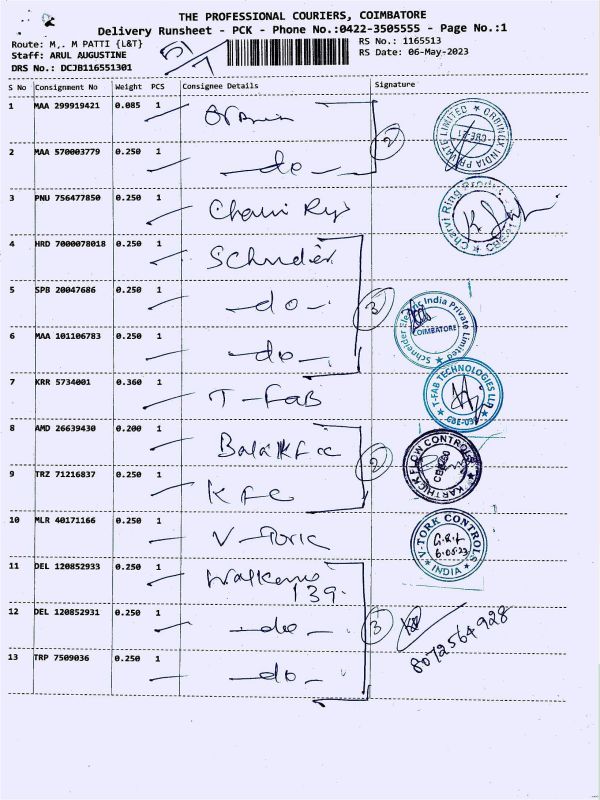 THE PROFESSIONAL COURIERS, COIMBATORE
Delivery Runsheet - PCK - Phone No.:0422-3505555 - Page No.:1
Route: M,. M PATTI {L&T}
RS No.: 1165513
Staff: ARUL AUGUSTINE
RS Date: 06-May-2023
DRS No.: DCJB116551301
S No Consignment No Weight PCS Consignee Details Signature
1 MAA 299919421 0.085 1
ORBINOX INDIA PRIVATE LIMITED
CBE-21
2 MAA 570003779 0.250 1 -do- 2
3 PNU 756477850 0.250 1
Charvi Ring
CBE-21
4 HRD 7000078018 0.250 1 Schneider
5 SPB 20047686 0.250 1 -do- 3
Schneider Electric India Private Limited
COIMBATORE
6 MAA 101106783 0.250 1 -do-
7 KRR 5734001 0.360 1 T-FAB
T-FAB TECHNOLOGIES LLP
8 AMD 26639430 0.200 1
KARTHICK FLOW CONTROLS
9 TRZ 71216837 0.250 1 KFC 2
10 MLR 40171166 0.250 1 V-Tork
V-TORK CONTROLS
6.05.23
INDIA
11 DEL 120852933 0.250 1
139.
12 DEL 120852931 0.250 1 -do- 3
8072564928
13 TRP 7509036 0.250 1 -do-